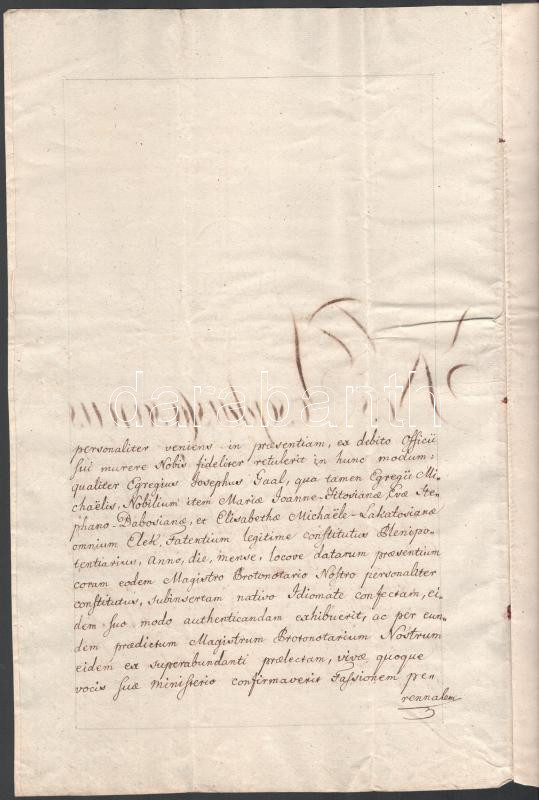 personaliter veniens in præsentiam, ex debito Officii
sui munere Nobis fideliter retulerit in hunc modum:
qualiter Egregius Josephus Gaal, qua tamen Egregii Mi„
chaëlis, Nobilium item Mariæ Joanne-Titosianæ, Evæ Ste„
phano-Dabosianæ, et Elisabethæ Michaële-Lakatosianæ
omnium Elek, Fatentium legitime constitutus Plenipo„
tentiarius, Anno, die, mense, locove datarum præsentium
coram eodem Magistro Protonotario Nostro personaliter
constitutus, subinsertam nativo Idiomate confectam, ei„
dem suo modo authenticandam exhibuerit, ac per eun„
dem prædictum Magistrum Protonotarium Nostrum
eidem ex superabundanti prælectam, vivæ quoque
vocis suæ ministerio confirmaverit Fassionem pe„
rennalem
darabanth